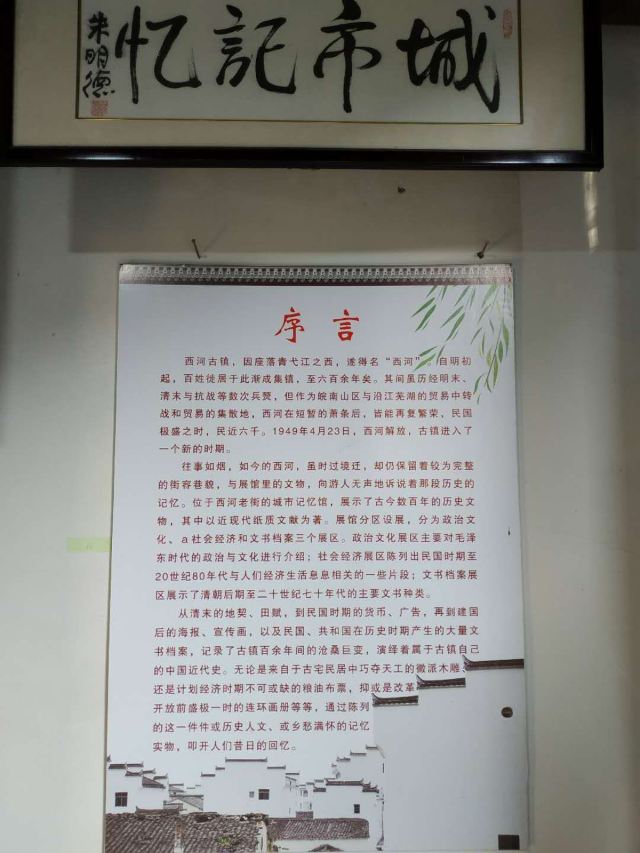 城市記忆
朱明德
序言
西河古镇，因座落青弋江之西，遂得名“西河”。自明初
起，百姓徙居于此渐成集镇，至六百余年矣。其间虽历经明末、
清末与抗战等数次兵燹，但作为皖南山区与沿江芜湖的贸易中转
战和贸易的集散地，西河在短暂的萧条后，皆能再复繁荣，民国
极盛之时，民近六千。1949年4月23日，西河解放，古镇进入了
一个新的时期。
往事如烟，如今的西河，虽时过境迁，却仍保留着较为完整
的街容巷貌，与展馆里的文物，向游人无声地诉说着那段历史的
记忆。位于西河老街的城市记忆馆，展示了古今数百年的历史文
物，其中以近现代纸质文献为著。展馆分区设展，分为政治文
化、a社会经济和文书档案三个展区。政治文化展区主要对毛泽
东时代的政治与文化进行介绍；社会经济展区陈列出民国时期至
20世纪80年代与人们经济生活息息相关的一些片段；文书档案展
区展示了清朝后期至二十世纪七十年代的主要文书种类。
从清末的地契、田赋，到民国时期的货币、广告，再到建国
后的海报、宣传画，以及民国、共和国在历史时期产生的大量文
书档案，记录了古镇百余年间的沧桑巨变，演绎着属于古镇自己
的中国近代史。无论是来自于古宅民居中巧夺天工的徽派木雕、
还是计划经济时期不可或缺的粮油布票，抑或是改革
开放前盛极一时的连环画册等等，通过陈列
的这一件件或历史人文、或乡愁满怀的记忆
实物，叩开人们昔日的回忆。